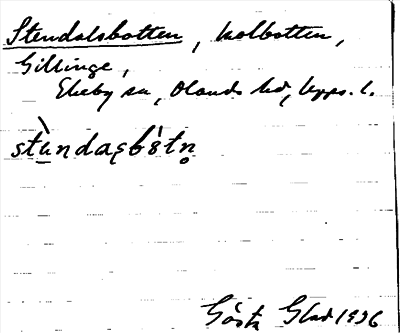 Stendalsbotten, kolbotten,
Gillinge,
Ekeby sn, Olands hd, Upps. l.
stὰndaʂbòtn̥
Gösta Glad 1936